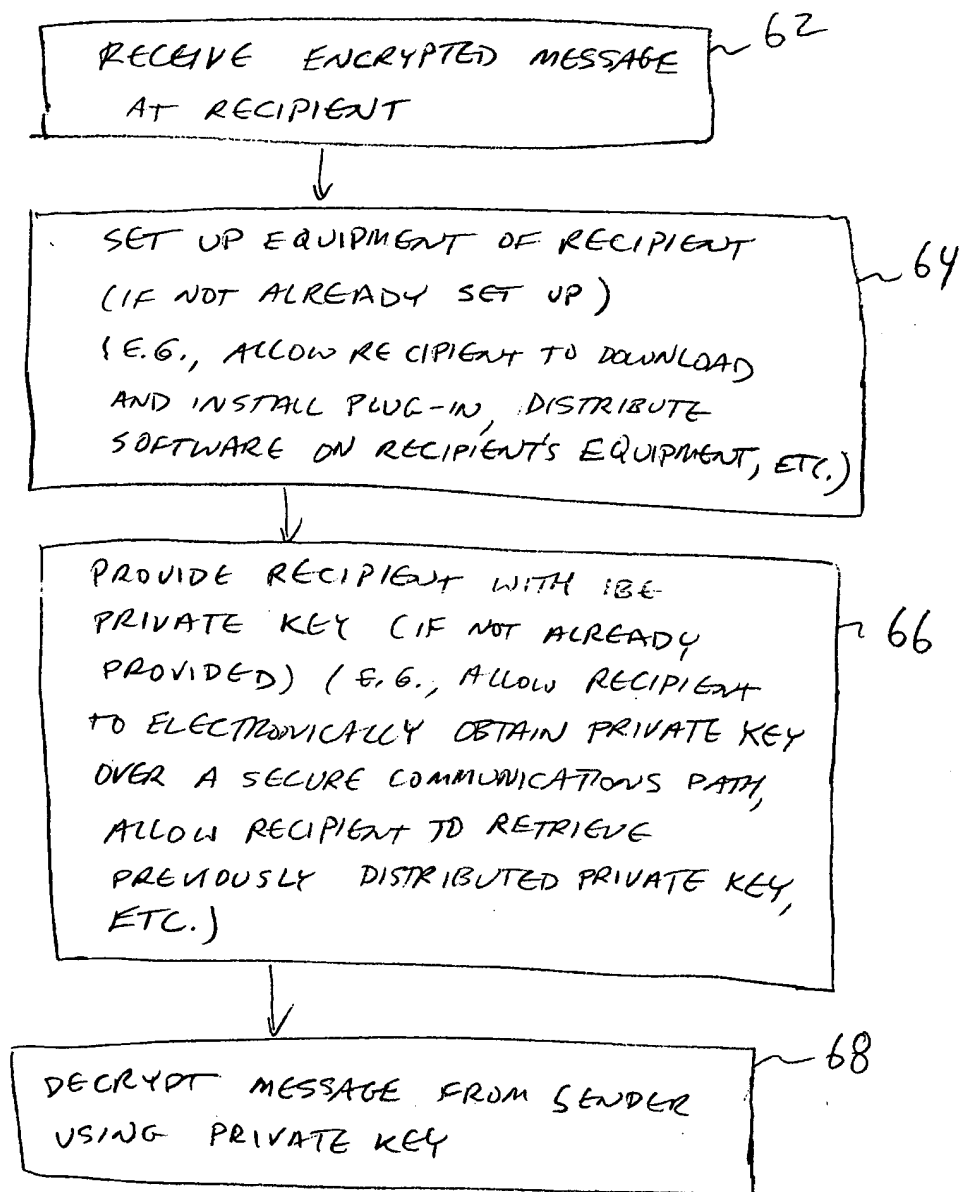 RECEIVE ENCRYPTED MESSAGE 62
AT RECIPIENT
SET UP EQUIPMENT OF RECIPIENT 64
(IF NOT ALREADY SET UP)
(E.G., ALLOW RECIPIENT TO DOWNLOAD
AND INSTALL PLUG-IN, DISTRIBUTE
SOFTWARE ON RECIPIENT'S EQUIPMENT, ETC.)
PROVIDE RECIPIENT WITH IBE
PRIVATE KEY (IF NOT ALREADY 66
PROVIDED) (E.G., ALLOW RECIPIENT
TO ELECTRONICALLY OBTAIN PRIVATE KEY
OVER A SECURE COMMUNICATIONS PATH,
ALLOW RECIPIENT TO RETRIEVE
PREVIOUSLY DISTRIBUTED PRIVATE KEY,
ETC.)
DECRYPT MESSAGE FROM SENDER 68
USING PRIVATE KEY